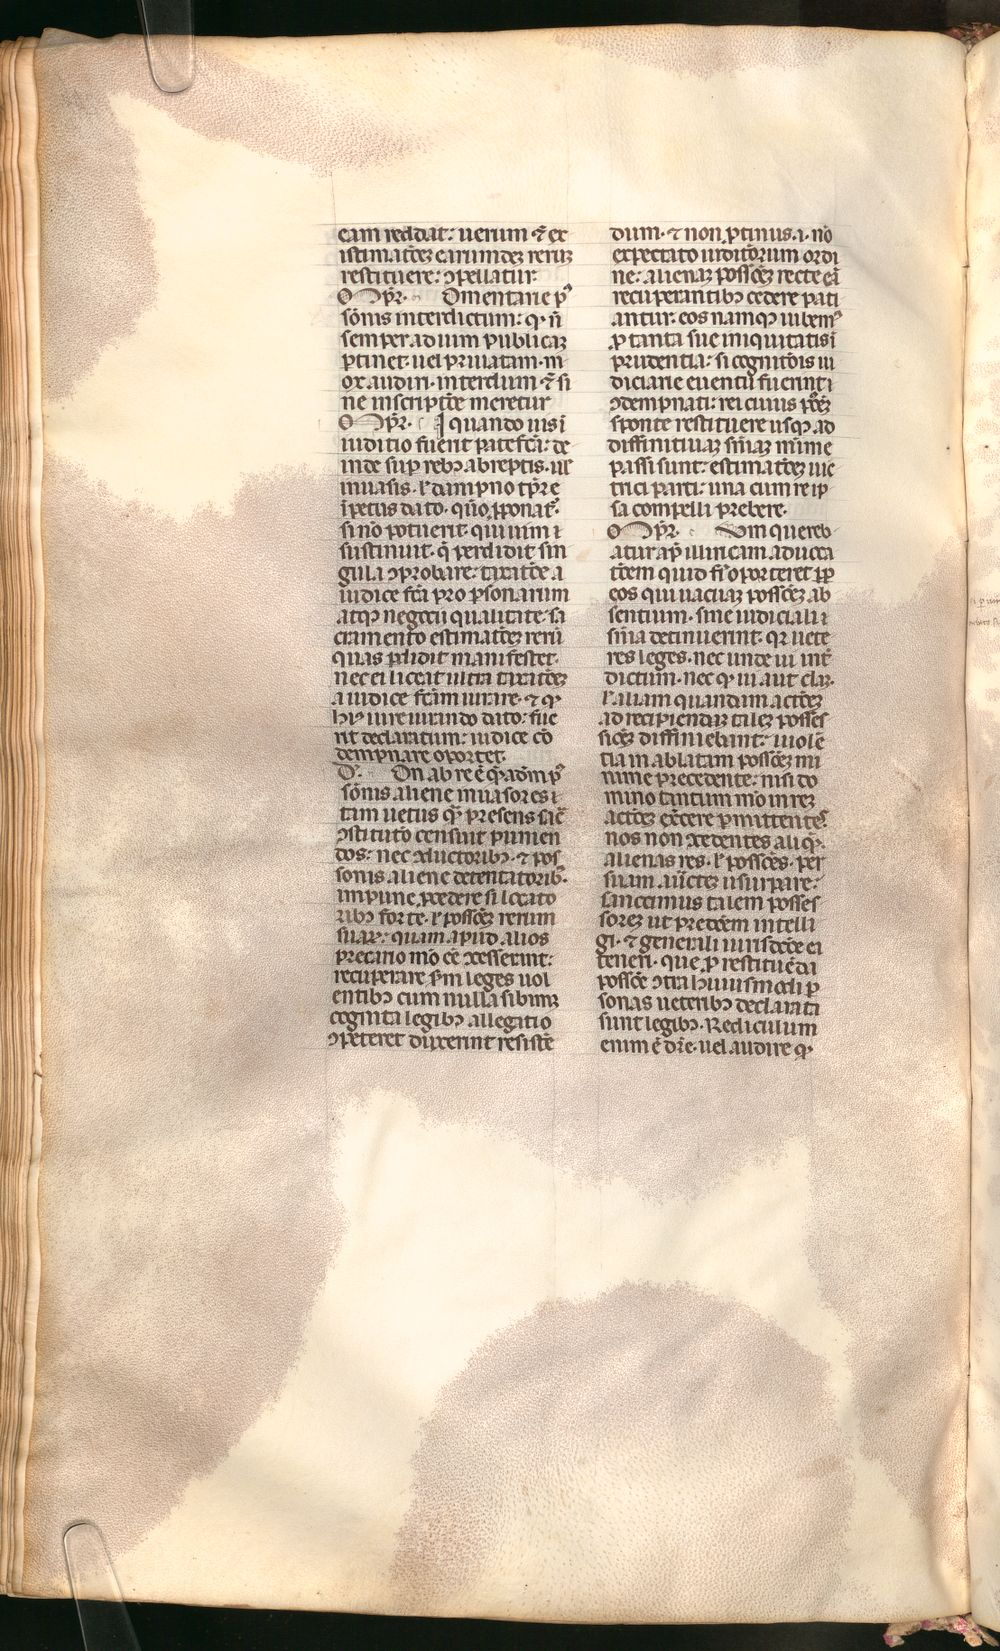 eam reddat: uerum ⁊ ex
istimat̃õz earumdez reruz
restituere: ɔpellatur
O p̃r. Omentarie p̃
sõnis interdictum: q̃ ñ
semper ad uim publicaz
ptinet. uel priuatam. m
ox audiri. interdum ⁊ si
ne inscriptõe meretur
O p̃r. I quando uis ĩ
iuditio fuerit patefc̃a: de
inde sup rebɔ abreptis. ul̃
inuasis. l̃ dampno tp̃r e
ĩpetus dato. q̃õ p̱ponat̃.
si nõ potuerit. qui uim ⁊
sustinuit. q̃ perdidit sin
gula ɔprobare: taxatõe a
iudice fc̃a pro psonarum
atqꝫ negotii qualitate. sa
cramento estimatõez rerũ
quas pdidit manifestet.
nec ei liceat ultra taxatõez
a iudice fc̃am iurare. ⁊ q̃
hɔ iure iurando dato: fue
rit declaratum: iudice cõ
dempnare oportet.
D. On ab re ẽ q̃admp̃
sõnis aliene inuasores ⁊
tam uetus q̃ presens sac̃
ɔstitutõ censuit punien
dos: nec ɔductoribɔ. ⁊ pos
sonis aliene detentatorib.
impune. p̱cedere si locato
ribɔ forte. l̃ possõez rerum
suaꝝ. quam apud alios
precario mõ eẽ ɔcesserint:
recuperare s̃m leges uol
entibɔ cum nulla sibimz
cognita legibɔ allegatio
ɔpeteret dixerint resistẽ
dum. ⁊ non p̱tinus. i. nõ
expectato iuditõrium ordi
ne: alienaz possõez recte eã
recuperantibɔ cedere pati
antur. eos namqꝫ iubem̃
p̱ tanta sue iniquitatis ĩ
prudentia: si cognitõis iu
diciarie euentũ fuerint ⁊
ɔdempnati: rei cuius põez
sponte restituere usqꝫ ad
diffinitiuaz sñiaz mĩme
passi sunt: estimatõez uic
trici parti: una cum re ip
sa compelli prebere.
O p̃r. Um quereb
atur ap̃ illiricam aduoca
tõem quid fĩ oporteret p̱p
eos qui uacuaz possõez ab
sentium. sine iudiciali ⁊
sñia detinuerint. qꝛ uete
res leges. nec unde ui int̃
dictum. nec q̃ ui aut clã.
l̃ aliam quandam actõez
ad recipiendaz talez posses
siõez diffiniebant: uiolẽ
tia in ablatam possõez mi
nime precedente: nisi do
mino tantum mõ in rez
actõez ex̃cere p̱mittentes̃.
nos non ɔcedentes aliq̃.
alienas res. l̃ possões. per
suam auc̃tez usurpare:
sanccimus talem posses
sorez ut predõem intelli
gi. ⁊ generali iurisdc̃õe ei
teneri. que p̱ restituẽda
possõe ɔtra huiusmodi p̱
sonas ueteribɔ declarata
sunt legibɔ. Rediculum
enim ẽ dr̃e. uel audire q̃